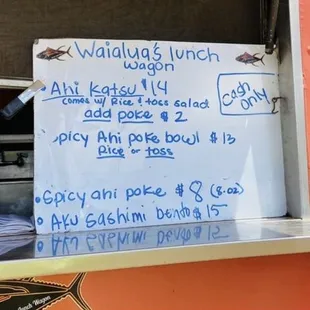 Waialua's lunch
wagon
• Ahi Katsu $14
comes w/ Rice & toss salad
add poke $2
Cash
only
spicy Ahi poke bowl $13
Rice or toss
• Spicy ahi poke $8 (8.oz)
• Aku Sashimi bento $15
Lunch Wagon